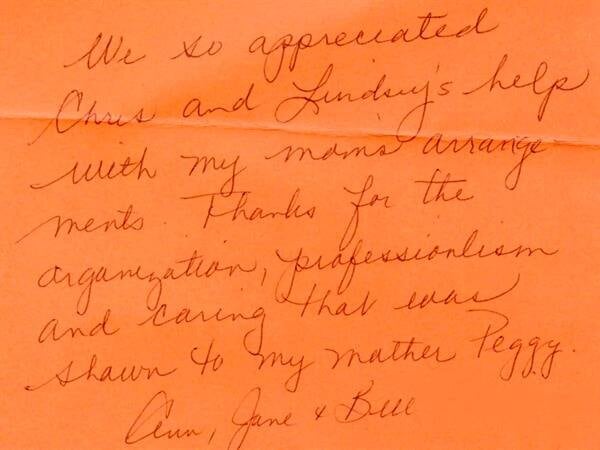 We so appreciated
Chris and Lindsey's help
with my moms arrange
ments. Thanks for the
organization, professionlism
and caring that was
shawn to my mother Peggy.
Ann, Jane & Bill